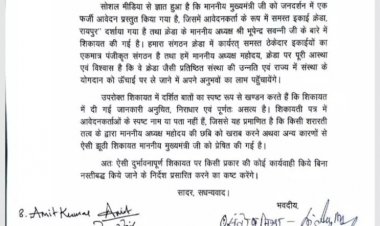 सोशल मीडिया से ज्ञात हुआ है कि माननीय मुख्यमंत्री जी को जनदर्शन में एक
फर्जी आवेदन प्रस्तुत किया गया है, जिसमें आवेदनकर्ता के रूप में समस्त इकाई क्रेडा,
रायपुर' दर्शाया गया है तथा क्रेडा के माननीय अध्यक्ष श्री भूपेन्द्र सवन्नी जी के बारे में
शिकायत की गई है। हमारा संगठन क्रेडा में कार्यरत् समस्त ठेकेदार इकाईयों का
एकमात्र पंजीकृत संगठन है तथा हमें माननीय अध्यक्ष महोदय, क्रेडा पर पूरी आस्था
एवं विश्वास है कि वे क्रेडा जैसी प्रतिष्ठित संस्था की उन्नति एवं राज्य में संस्था के
योगदान को ऊँचाई पर ले जाने में अपने अनुभवों का लाभ पहुंचायेंगे।
उपरोक्त शिकायत में दर्शित बातों का स्पष्ट रूप से खण्डन करते हैं कि शिकायत
में दी गई जानकारी अनुचित, निराधार एवं पूर्णतः असत्य है। शिकायती पत्र में
आवेदनकर्ताओं के स्पष्ट नाम या पता नहीं हैं, जिससे यह प्रमाणित है कि किसी शरारती
तत्व के द्वारा माननीय अध्यक्ष महोदय की छबि को खराब करने अथवा अन्य कारणों से
ऐसी झूठी शिकायत माननीय मुख्यमंत्री जी को प्रेषित की गई है।
अतः ऐसी दुर्भावनापूर्ण शिकायत पर किसी प्रकार की कोई कार्यवाही किये बिना
नस्तीबद्ध किये जाने के निर्देश प्रसारित करने का कष्ट करेंगे।
सादर, सधन्यवाद।
भवदीय,
8. Amit Kumar Amit